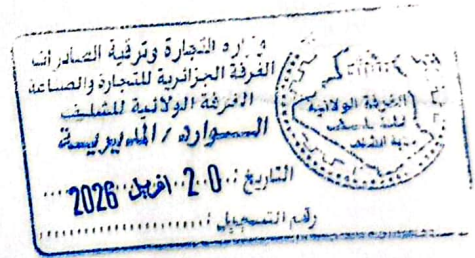 وزارة التجارة وترقية الصادرات
الغرفة الجزائرية للتجارة والصناعة
الغرفة الولائية للشلف
الـــوارد / المديريـــة
التاريخ : 20 افريل 2026
رقم التسجيل :
الغرفة الولائية